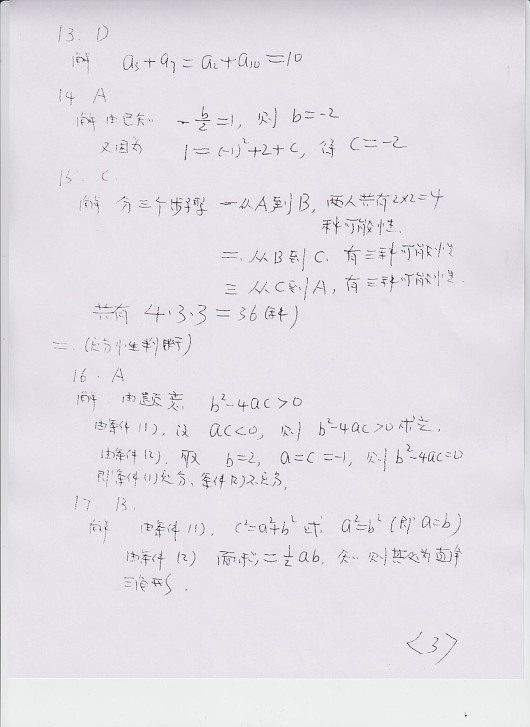 13. D
解 a₅+a₇=a₂+a₁₀=10
14 A
解 由已知 -b/2=1, 则 b=-2
又因为 1=(-1)²+2+c, 得 c=-2
15. C.
解 分三个步骤 一从A到B, 两人共有2×2=4
种可能性.
二.从B到C. 有三种可能性
三 从C到A, 有三种可能性.
共有 4·3·3=36(种)
二.(充分性判断)
16. A
解 由题意 b²-4ac>0
由条件(1), 设 ac<0, 则 b²-4ac>0成立.
由条件(2). 取 b=2, a=c=-1, 则b²-4ac=0
即条件(1)充分, 条件(2)不充分,
17 B.
解 由条件(1), c²=a²+b² 或 a²=b² (即a=b)
由条件(2) 面积=½ab, 知 则其必为直角
三角形.
<3>